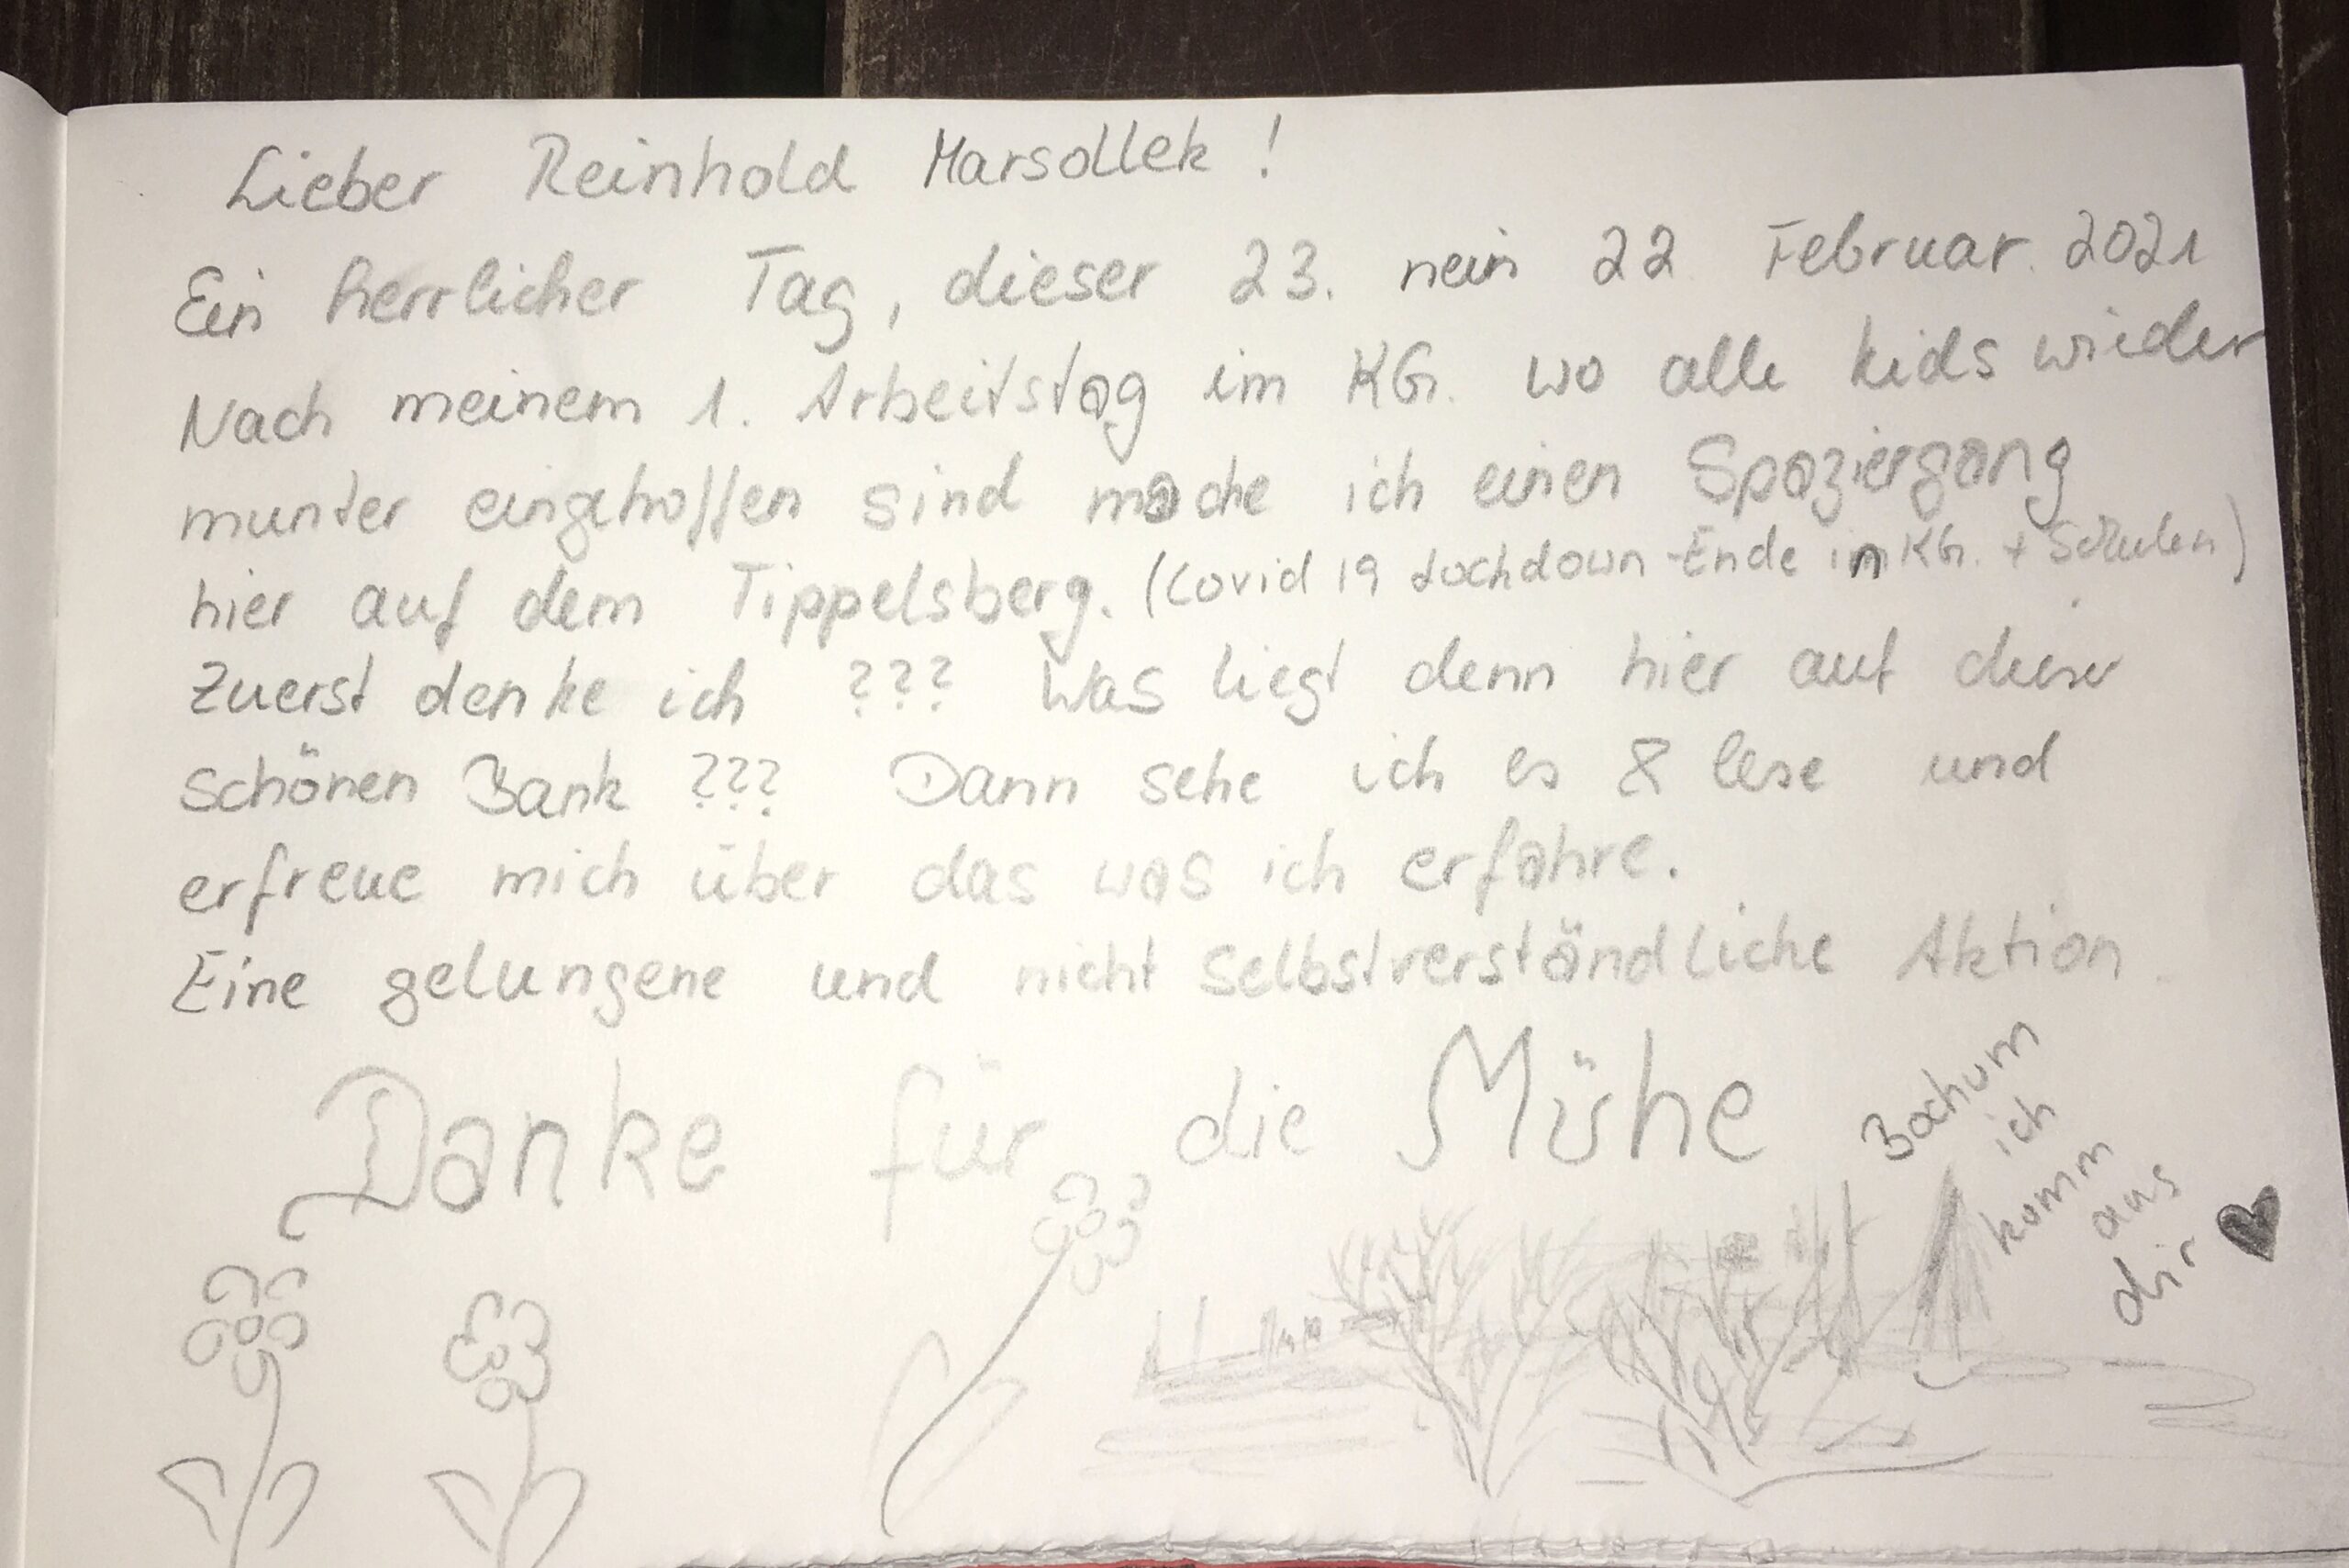 Lieber Reinhold Marsollek !
Ein herrlicher Tag, dieser 23. nein 22 Februar. 2021
Nach meinem 1. Arbeitstag im KG. wo alle kids wieder
munter eingetroffen sind mache ich einen Spaziergang
hier auf dem Tippelsberg. (Covid 19 Lockdown-Ende in KG. + Schulen)
Zuerst denke ich ??? Was liegt denn hier auf dieser
schönen Bank ??? Dann sehe ich es & lese und
erfreue mich über das was ich erfahre.
Eine gelungene und nicht selbstverständliche Aktion.
Danke für die Mühe
Bochum
ich
komm
aus
dir ♥